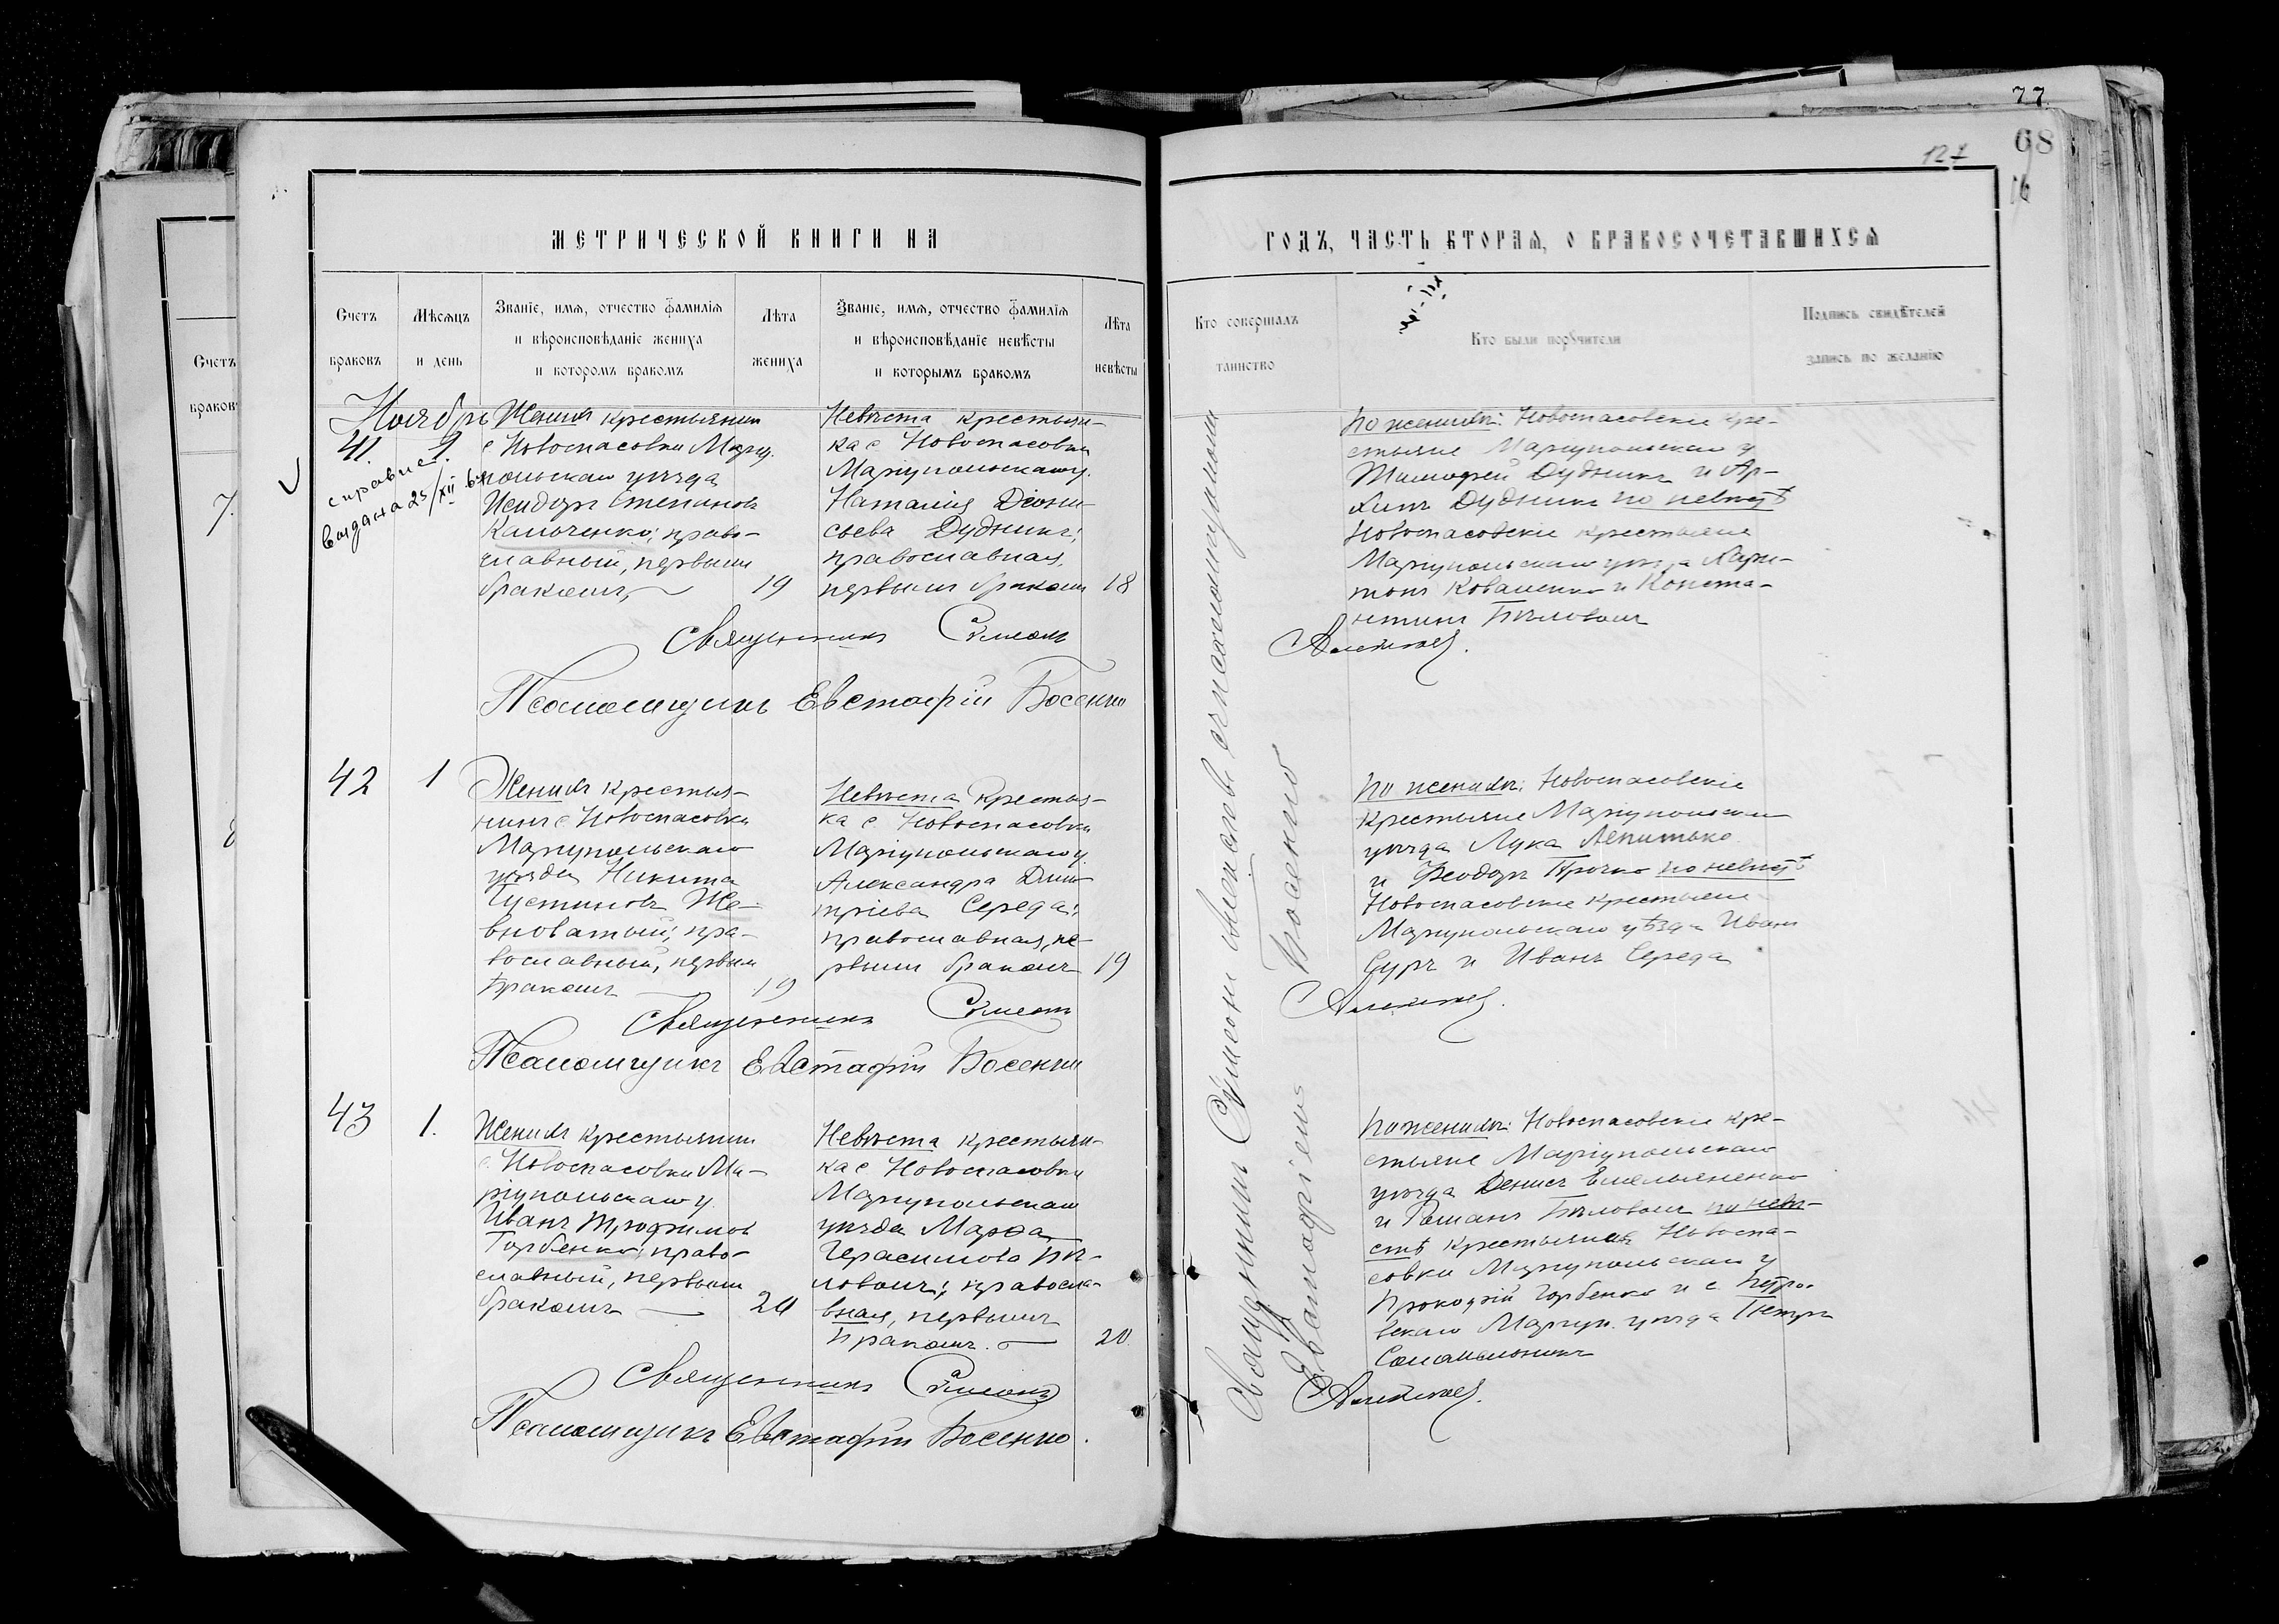 77
68
127
МЕТРИЧЕСКОЙ КНИГИ НА
ГОДЪ, ЧАСТЬ ВТОРАѦ, О БРАКОСОЧЕТАВШИХСѦ
Счетъ
браковъ
Мѣсѧцъ
и день
Званіе, имѧ, отчество фамиліѧ
и вѣроисповѣданіе жениха
и которомъ бракомъ
Лѣта
жениха
Званіе, имѧ, отчество фамиліѧ
и вѣроисповѣданіе невѣсты
и которымъ бракомъ
Лѣта
невѣсты
Кто совершалъ
таинство
Кто были порꙋчители
Подпись свидѣтелей
запись по желанію
Счетъ
браковъ
7.
8
Ноябрь
41.
справка
выдана 25/XII
Женихъ крестьянин
с Новоспасовки Мариу-
польскаго уѣзда
Исидоръ Степановъ
православный, первымъ
бракомъ,
19
Невѣста крестьян-
ка с Новоспасовки
Мариупольскаго у.
Наталія Діони-
сьева Дудникъ;
православная,
первымъ бракомъ
18
Священникъ Сѵмеонъ
Алексѣевъ.
Псаломщикъ Евстафій Босенко
По женихѣ: Новоспасовскіе кре-
стьяне Мариупольскаго у
Тимофей Дудникъ и Ар-
хипъ Дудникъ по невѣстѣ
Новоспасовскіе крестьяне
Мариупольскаго уѣзда Хари-
тонъ Коваленко и Конста-
нтинъ Бѣловолъ
42
1
Женихъ крестья-
нинъ с Новоспасовки
Мариупольскаго
уѣзда Никита
Іустиновъ Же-
вноватый; пра-
вославный, первым
бракомъ
19
Невѣста крестья-
ка с. Новоспасовки
Маріупольскаго у.
Александра Дими-
тріева Середа;
православная, пе-
рвымъ бракомъ
19
Священникъ Сѵмеонъ
Алексѣевъ.
Псаломщикъ Евстафій Босенко
По женихѣ: Новоспасовскіе
крестьяне Маріупольскаго
уѣзда Лука
и Феодоръ по невѣстѣ
Новоспасовскіе крестьяне
Мариупольскаго уѣзда Иванъ
Суръ и Иванъ Середа
43
1.
Женихъ крестьянин
с. Новоспасовки Ма-
ріупольскаго у
Иванъ Трофимов
Горбенко; право-
славный, первым
бракомъ
20
Невѣста крестьян-
ка с Новоспасовки
Мариупольскаго
уѣзда Марѳа
Герасимова Бѣ-
ловолъ; правосла-
вная, первымъ
бракомъ.
20.
Священникъ Сѵмеонъ
Алексѣевъ.
Псаломщикъ Евстафій Босенко.
По женихѣ: Новоспасовскіе кре-
стьяне Маріупольскаго
уѣзда Денисъ Емельяненко
и Романъ Бѣловолъ по невѣ-
стѣ крестьянинъ Новоспа-
совки Мариупольскаго у
Прокофій Горбенко и с Петро-
вскаго Мариуп. уѣзда Петръ
Священникъ Сѵмеонъ Алексѣевъ съ псаломщикомъ
Евстафіемъ Босенко